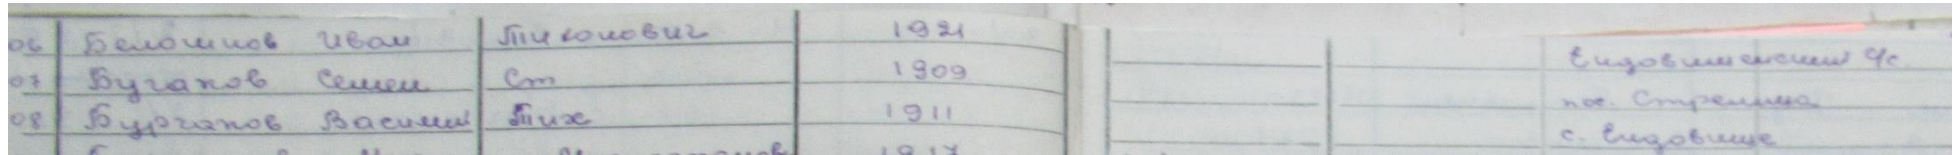 06 Белошнов Иван Тихонович 1921 Ендовищенский с/с
07 Бугаков Семен Ст 1909 пос. Стрелица
08 Бурчаков Василий Тих 1911 с. Ендовище
1917